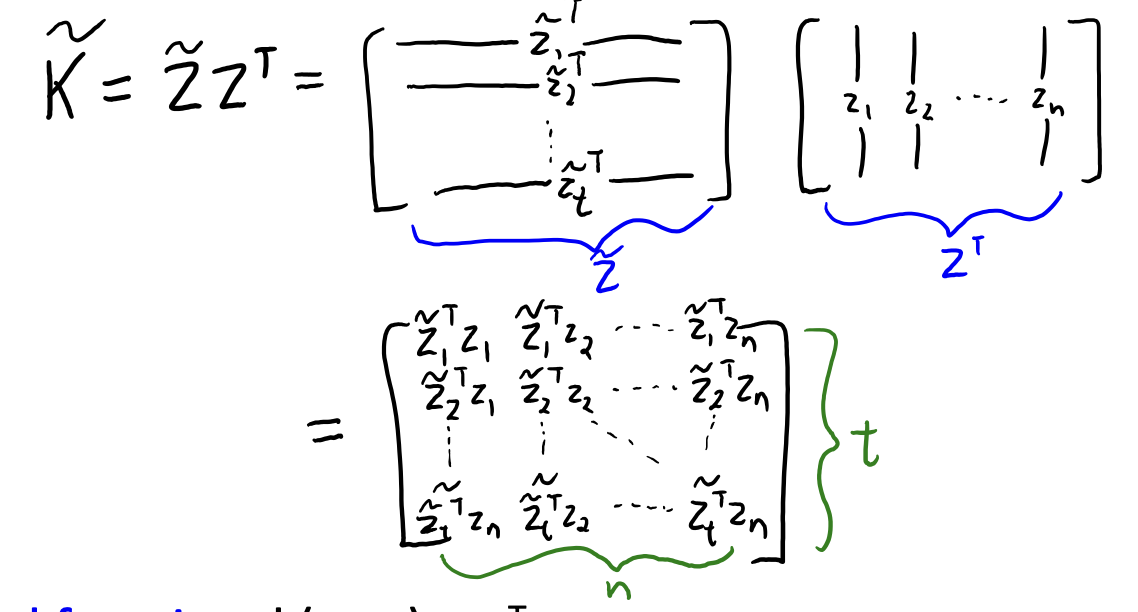 K̃ = Z̃Zᵀ = [ — z̃₁ᵀ — — z̃₂ᵀ — ⋮ — z̃ₜᵀ — ] [ z₁ z₂ ⋯ zₙ ]
Z̃ Zᵀ
= [ z̃₁ᵀz₁ z̃₁ᵀz₂ ---- z̃₁ᵀzₙ
z̃₂ᵀz₁ z̃₂ᵀz₂ ---- z̃₂ᵀzₙ
z̃ₜᵀzₙ z̃ₜᵀz₂ ---- z̃ₜᵀzₙ ] t
n